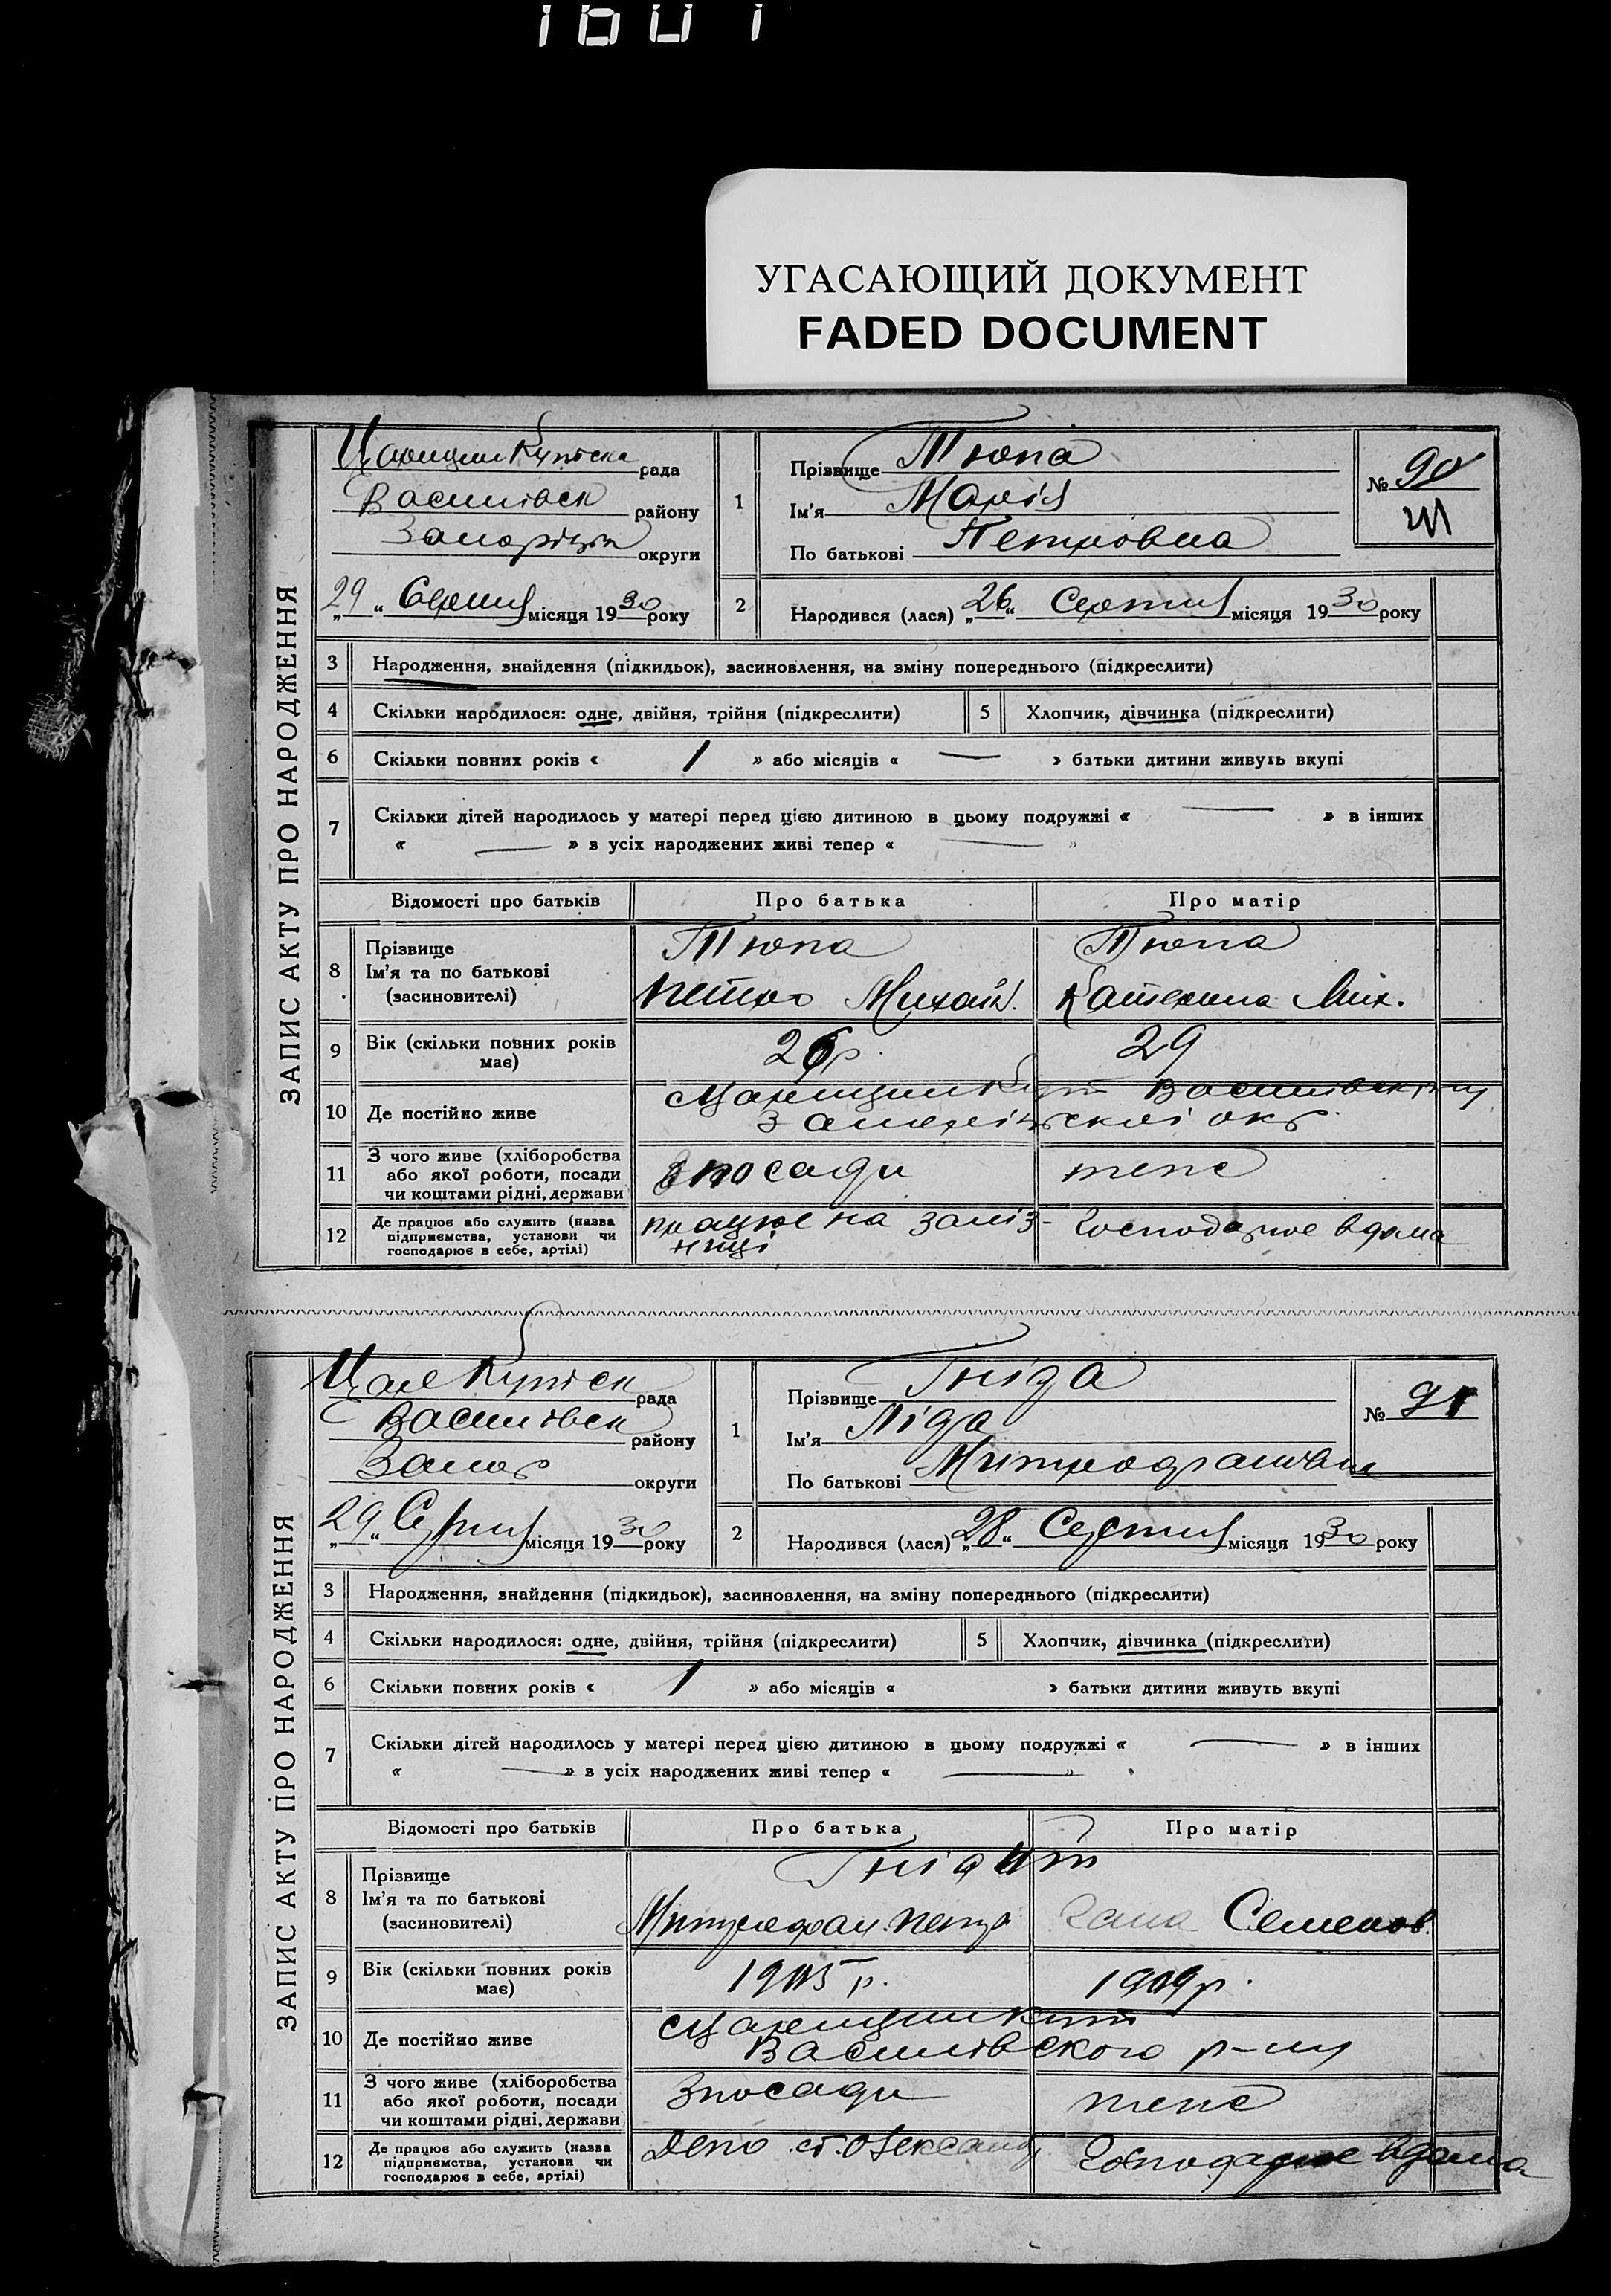 1601
УГАСАЮЩИЙ ДОКУМЕНТ
FADED DOCUMENT
ЗАПИС АКТУ ПРО НАРОДЖЕННЯ
рада
Василівськ району
округи
29 " Серпня місяця 1930 року
1 Прізвище Тюпа
Ім'я Марія
По батькові Петровна
№ 90
2 Народився (лася) „26" Серпня місяця 1930 року
3 Народження, знайдення (підкидьок), засиновлення, на зміну попереднього (підкреслити)
4 Скільки народилося: одне, двійня, трійня (підкреслити) 5 Хлопчик, дівчинка (підкреслити)
6 Скільки повних років « 1 » або місяців « — » батьки дитини живуть вкупі
7 Скільки дітей народилось у матері перед цією дитиною в цьому подружжі « — » в інших
« — » в усіх народжених живі тепер « — »
Відомості про батьків Про батька Про матір
8 Прізвище Тюпа Тюпа
Ім'я та по батькові
(засиновителі) Петро Михайл. Катерина Мих.
9 Вік (скільки повних років має) 29
10 Де постійно живе
11 З чого живе (хліборобства
або якої роботи, посади
чи коштами рідні, держави
з посади теж
12 Де працює або служить (назва
підприємства, установи чи
господарює в себе, артілі)
працює на заліз-
ниці
Господарює вдома
ЗАПИС АКТУ ПРО НАРОДЖЕННЯ
рада
Василівськ району
Запор округи
29 " Серпня місяця 1930 року
1 Прізвище Гніда
Ім'я Ліда
По батькові
№ 91
2 Народився (лася) „28" Серпня місяця 1930 року
3 Народження, знайдення (підкидьок), засиновлення, на зміну попереднього (підкреслити)
4 Скільки народилося: одне, двійня, трійня (підкреслити) 5 Хлопчик, дівчинка (підкреслити)
6 Скільки повних років « 1 » або місяців « » батьки дитини живуть вкупі
7 Скільки дітей народилось у матері перед цією дитиною в цьому подружжі « — » в інших
« — » в усіх народжених живі тепер « — »
Відомості про батьків Про батька Про матір
8 Прізвище
Ім'я та по батькові
(засиновителі) Семенов.
9 Вік (скільки повних років має) 1905 р. 1909 р.
10 Де постійно живе
Василівського р-ну
11 З чого живе (хліборобства
або якої роботи, посади
чи коштами рідні, держави
З посади теж
12 Де працює або служить (назва
підприємства, установи чи
господарює в себе, артілі)
Депо ст. Олександ
Господарює вдома